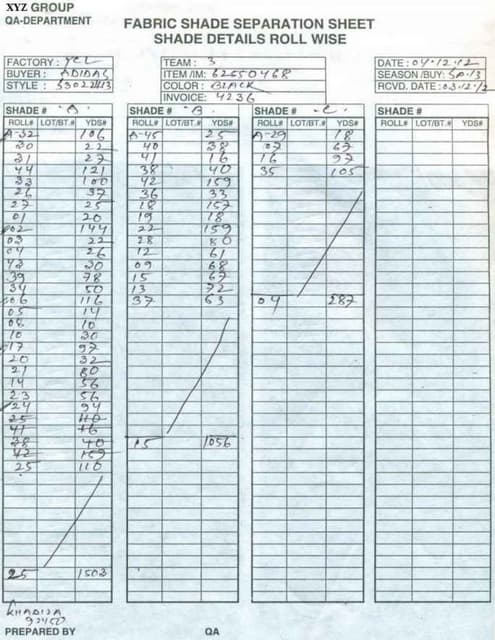 XYZ GROUP
QA-DEPARTMENT
FABRIC SHADE SEPARATION SHEET
SHADE DETAILS ROLL WISE
FACTORY : YCL
BUYER : ADIDAS
STYLE :
TEAM : 3
ITEM /IM: 62550468
COLOR : BLACK
INVOICE: 4236
DATE : 04.12.12
SEASON /BUY: SP.13
RCVD. DATE: 03.12.12
SHADE # "A" SHADE # "B" SHADE # "C" SHADE #
ROLL# LOT/BT.# YDS# ROLL# LOT/BT.# YDS# ROLL# LOT/BT.# YDS# ROLL# LOT/BT.# YDS#
A-32 106 A-45 25 A-29 18
30 22 40 38 07 67
31 27 41 16 16 97
44 121 38 40 35 105
33 100 42 159
26 37 36 33
27 25 18 157
01 20 19 18
02 144 22 159
03 22 28 80
04 26 12 61
43 30 09 68
39 78 15 67
34 50 13 72
06 116 37 63 04 287
05 14
08 10
10 30
17 97
20 32
21 80
14 56
23 56
24 94
25 110
41 16
38 40 15 1056
42 159
25 110
25 1503
KHADIJA
PREPARED BY QA